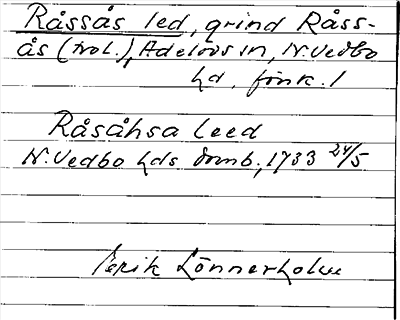 Råssås led, grind Råss-
ås (trol.), Adelövs sn, N. Vedbo
hd, fönk. 1
Råsåhsa Leed
N. Vedbo hds domb., 1733 24/5
Erik Lönnerholm